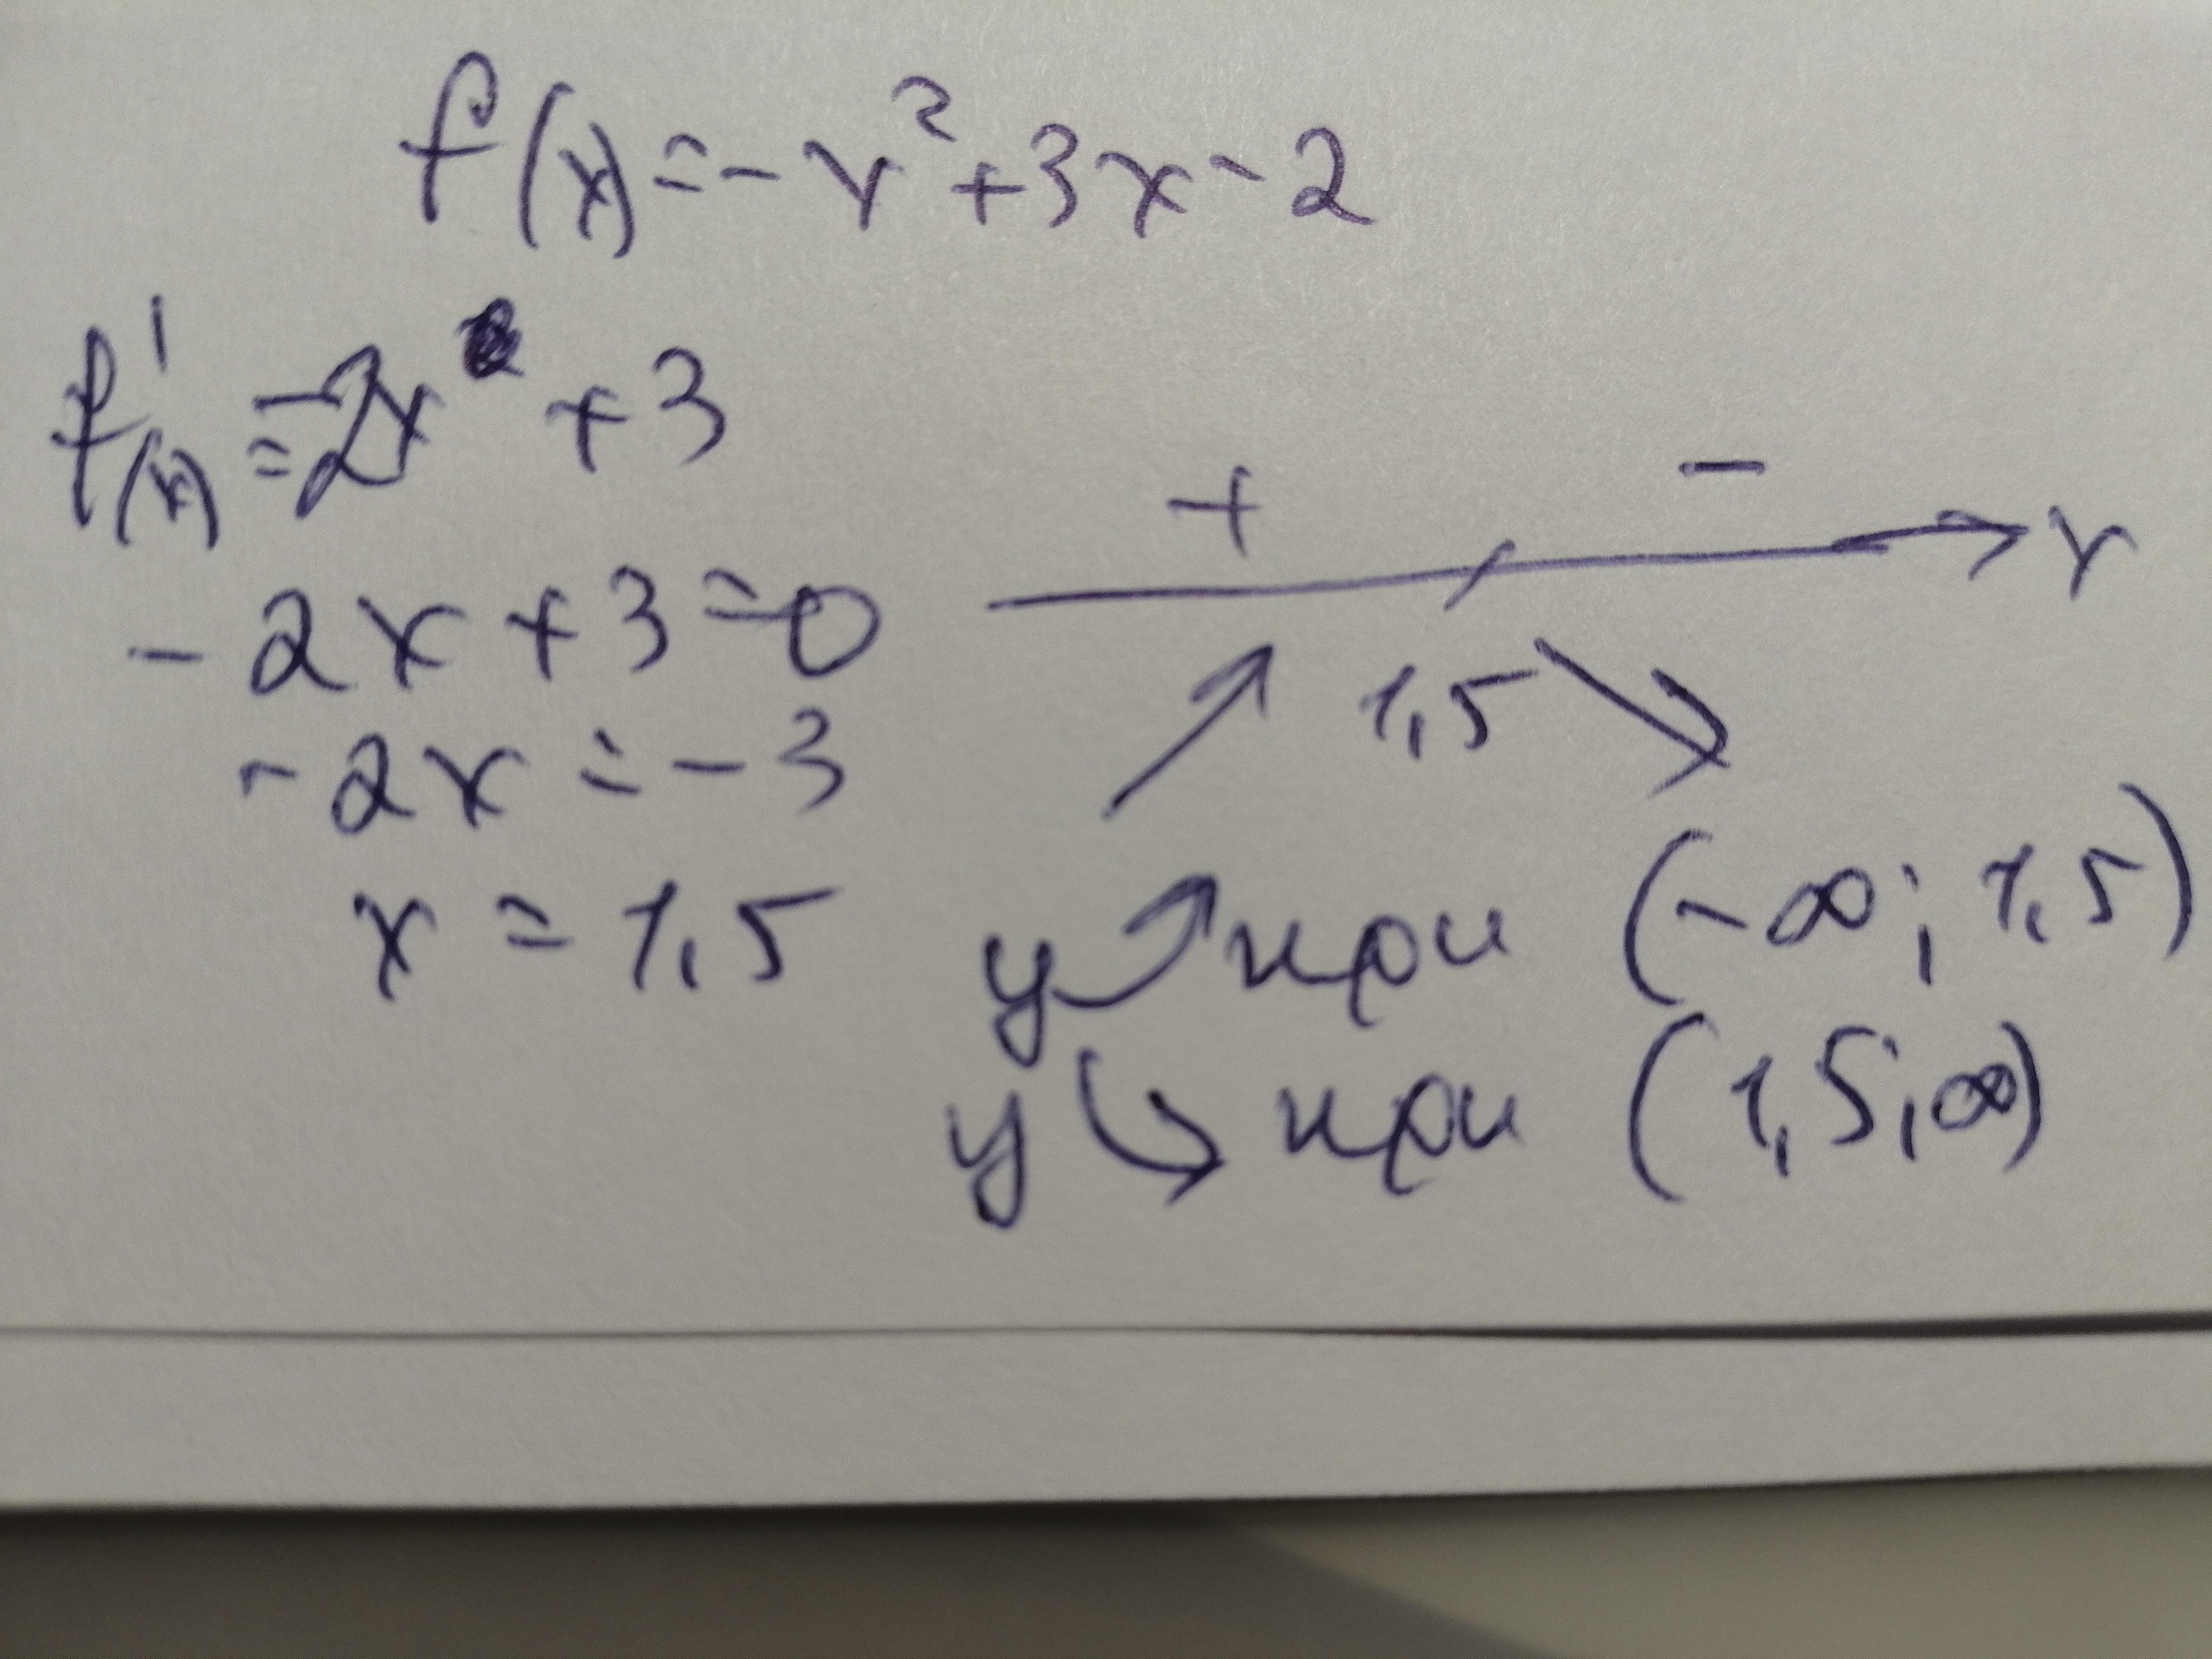 f(x)=-x²+3x-2
f'(x)=-2x+3
-2x+3=0
-2x=-3
x=1,5
+ -
x
1,5
y↗при (-∞; 1,5)
y↘при (1,5;∞)